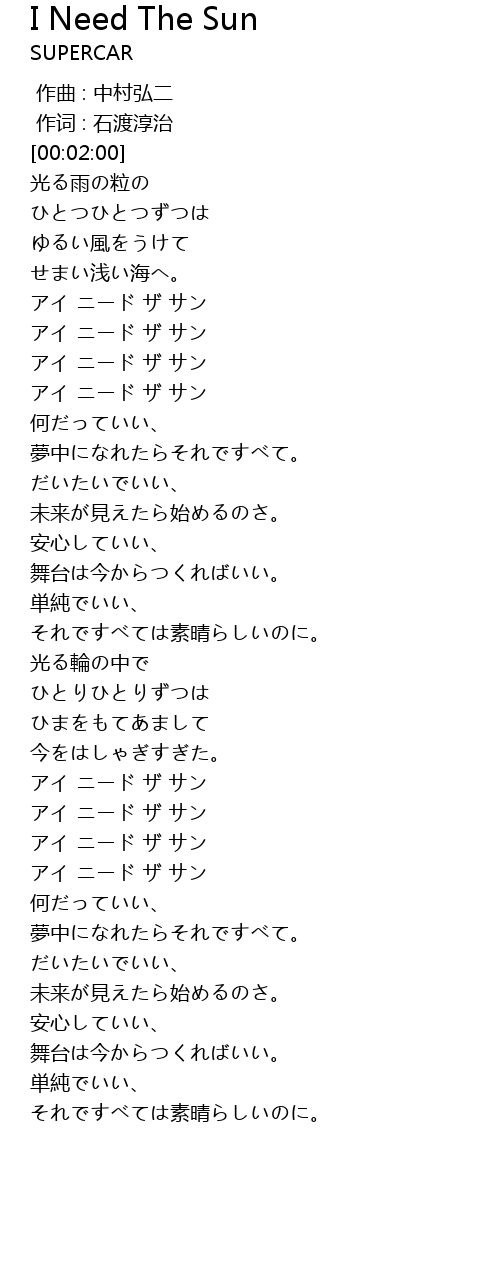 I Need The Sun
SUPERCAR
作曲 : 中村弘二
作词 : 石渡淳治
[00:02:00]
光る雨の粒の
ひとつひとつずつは
ゆるい風をうけて
せまい浅い海へ。
アイ ニード ザ サン
アイ ニード ザ サン
アイ ニード ザ サン
アイ ニード ザ サン
何だっていい、
夢中になれたらそれですべて。
だいたいでいい、
未来が見えたら始めるのさ。
安心していい、
舞台は今からつくればいい。
単純でいい、
それですべては素晴らしいのに。
光る輪の中で
ひとりひとりずつは
ひまをもてあまして
今をはしゃぎすぎた。
アイ ニード ザ サン
アイ ニード ザ サン
アイ ニード ザ サン
アイ ニード ザ サン
何だっていい、
夢中になれたらそれですべて。
だいたいでいい、
未来が見えたら始めるのさ。
安心していい、
舞台は今からつくればいい。
単純でいい、
それですべては素晴らしいのに。